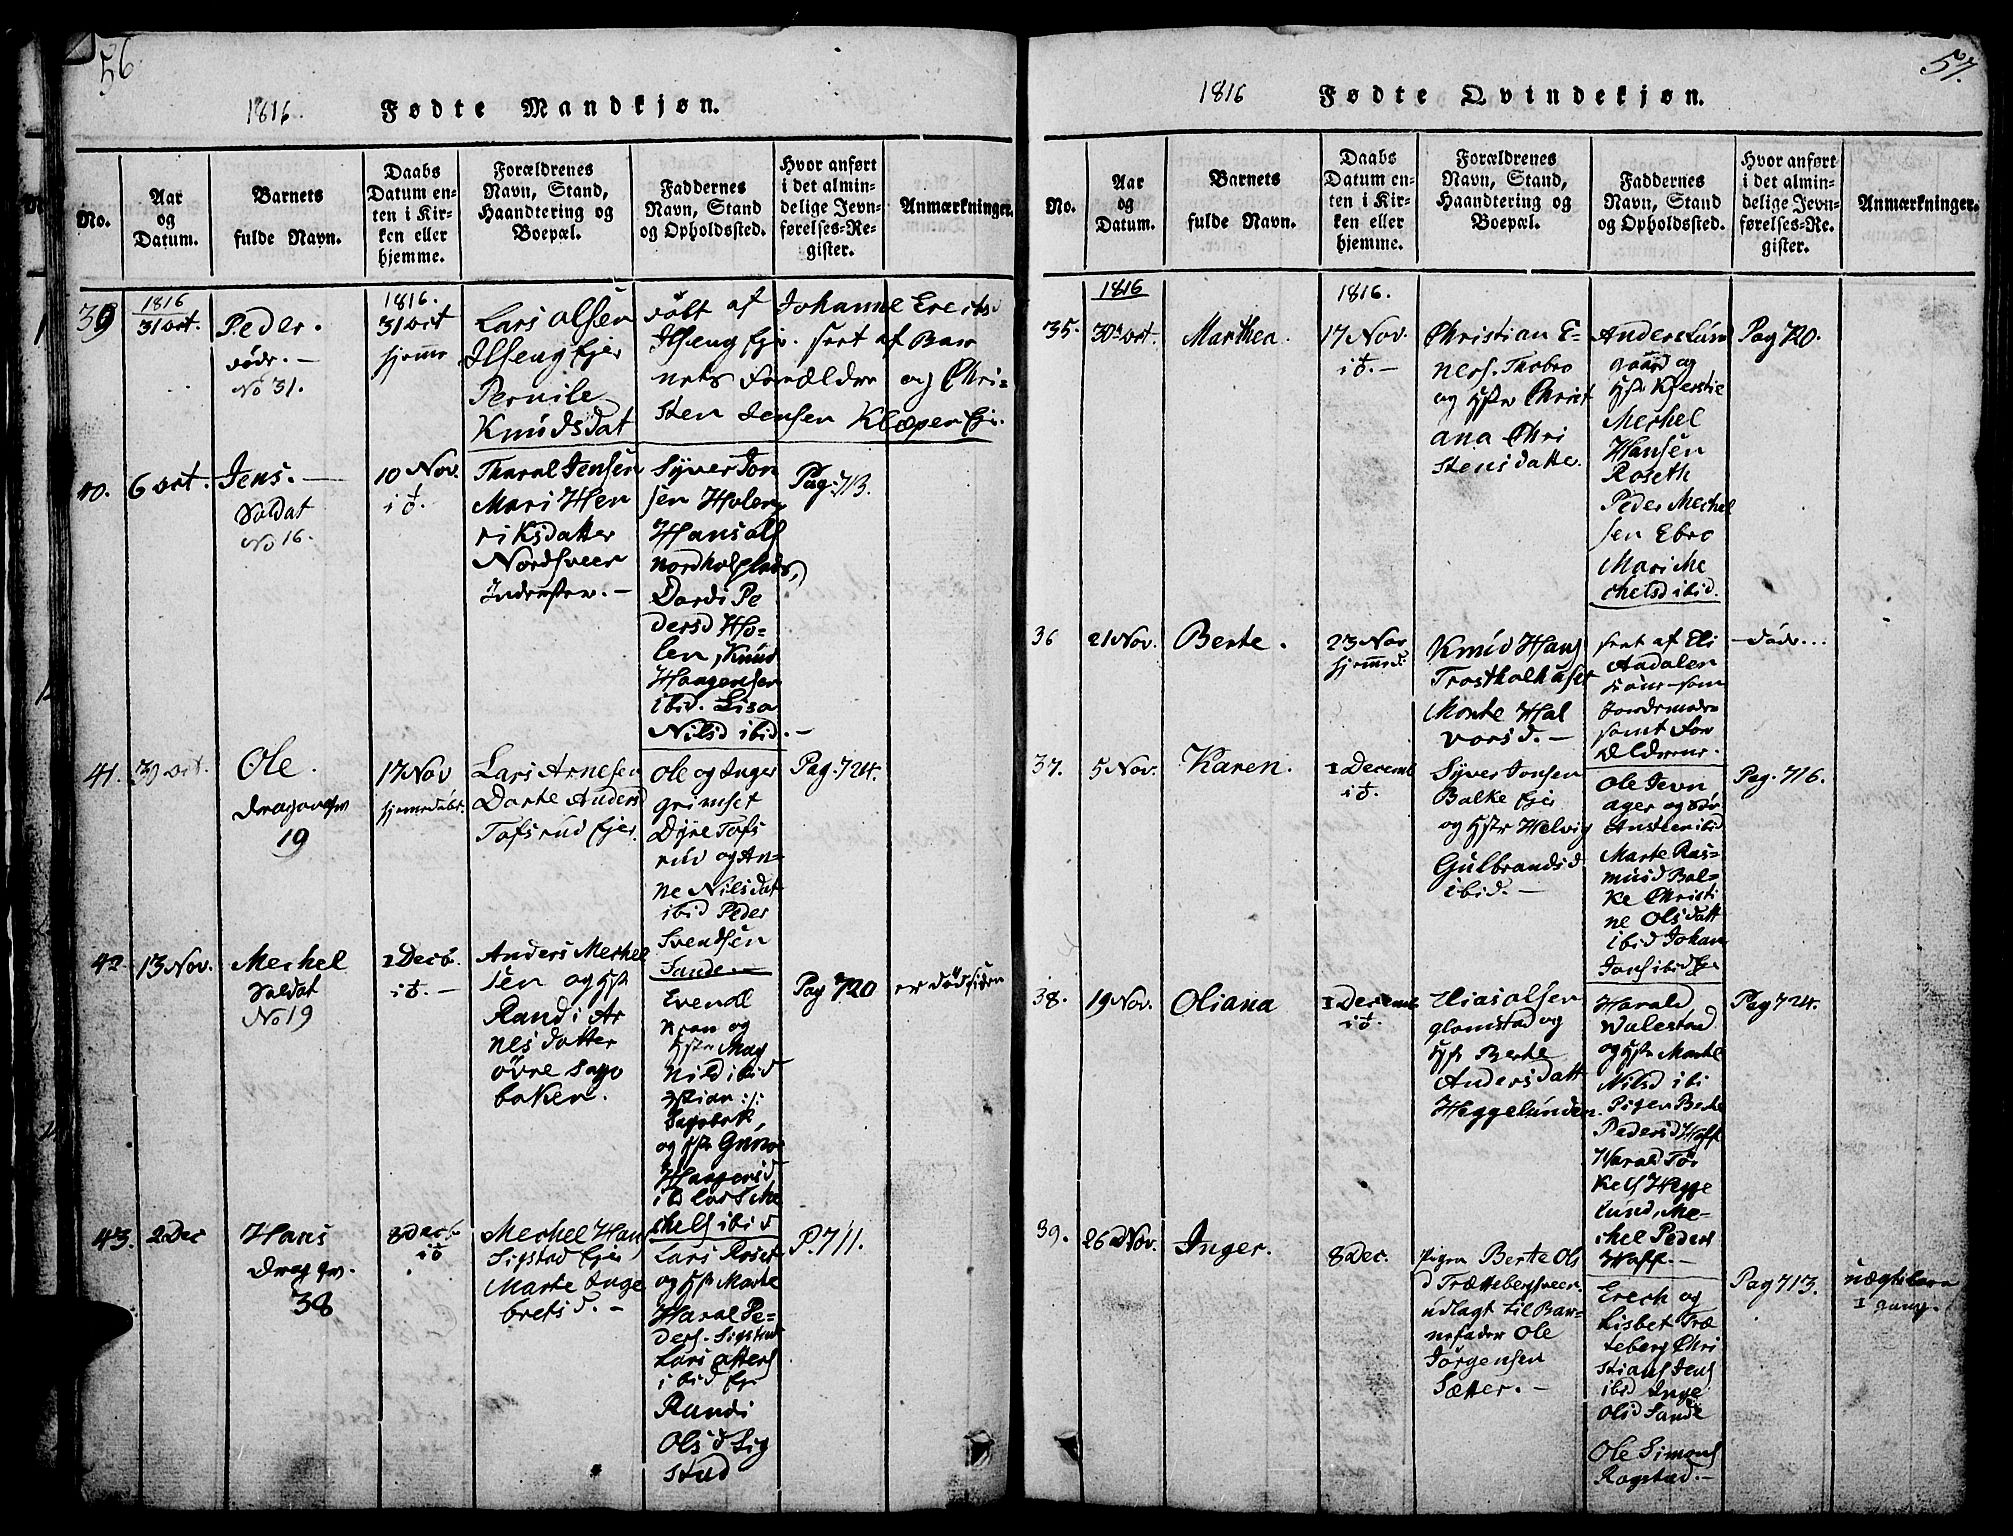 56
1816. Fødte Mandkjøn.
No.
Aar
og
Datum.
Barnets
fulde Navn.
Daabs
Datum en-
ten i Kir-
ken eller
hjemme.
Forældrenes
Navn, Stand,
Haandtering og
Boepæl.
Faddernes
Navn, Stand
og Opholdssted.
Hvor anført
i det almin-
delige Jevn-
førelses-Re-
gister.
Anmærkninger.
39
1816
31 oct.
Peder.
No 31.
1816.
31 oct
hjemme
Lars Olsen
Ilseng Ejer
Pernile
Knudsdat
døbt af Johanne Erichsd
Ilseng Ejer. sert af Bar
nets Forældre og Chri-
sten Jensen Klæpen Eje.
40. 6 oct.
Jens. —
Soldat
No 16.
10 Nov.
Tharal Jensen
Mari Hen
riksdatter
Nordsveer
Syver Jon
sen Holen
Hans Ols
Dordi Pe
dersd Ho-
len, Knud
Haagensen
ibid. Lisa
Nilsd ibid. —
Pag. 713.
41.
Ole.
19
17 Nov
Lars Arnesen
Dorte Andersd
Tofsrud Ejer.
Ole og Inger
grimset
Dyre Tofs
rud og An-
ne Nilsdat
ibid Peder
Svendsen
Sande. —
Pag. 724.
42 13 Nov.
Mechel
Soldat
No 19
1 Decb.
Anders Mechel
sen og hstr
Randi Ar
nesdatter
øvre Sago
baken.
Evend
Kran og
hstr Mag
nild ibid
og hstr
Haagensd
chels ibid
Pag 720
er død siden
43. 2 Dec
Hans
38
8 Decb.
Mechel Hans
Sigstad Ejer
Marte Inge
bretsd. —
og hstr Marte
Haral Pe-
ders. Sigstad
ibid Ejer
Randi
Olsd Sig
stad
P. 711.
57.
1816 Fødte Qvindekjøn.
No.
Aar
og
Datum.
Barnets
fulde Navn.
Daabs
Datum en-
ten i Kir-
ken eller
hjemme.
Forældrenes
Navn, Stand,
Haandtering og
Boepæl.
Faddernes
Navn, Stand
og Opholdssted.
Hvor anført
i det almin-
delige Jevn-
førelses-Re-
gister.
Anmærkninger.
35.
1816
30 oct.
Marthea.
1816.
17 Nov.
Christian E-
ners. Thobro
og hstr Christ
iana Chri
stensdatter.
Anders Lund
gaard og
hstr Kjerstie
Mechel
Hansen
Roseth
Peder Mechel
sen Ebro
Mari Me
chelsd ibid.
Pag 720.
36 21 Nov.
Berte.
23 Nov
hjemmed.
Knud Hans
Morte Hal
vorsd. —
sert af Eli
Aadalen
samt For
ældrene.
— død...
37. 5 Nov.
Karen.
1 Decemb
Syver Jonsen
Balke Ejer
og hstr Helvig
Gulbrandsd
ibid. —
Ole Jevn
ager og
Marte Ras-
musd Bal-
ke Christi
ne Olsdatt
ibid Johan
Jons ibid
Pag. 716.
38. 19 Nov.
Oliana
1 Decemb
Elias Olsen
glomstad og
hstr Berte
Andersdatt
Heggelunden.
Harald
Walestad
og hstr Marte
Nilsd ibi
Pigen Berte
Pedersd Hoff
Harald Tor
kels Hegge
lund, Me-
chel Peders
Hoff. —
Pag 724.
39. 26 Nov.
Inger.
8 Dec.
Pigen Berte Ols
d Trættebergsveen
udlagt til Bar-
nefader Ole
Jørgensen
Sætter. —
Erech og
Lisbet Træ
teberg Chri
stians Jens
ibid Inge
Olsd Sande
Ole Simons
Rogstad. —
Pag 713.
uægtebarn
1 gang.